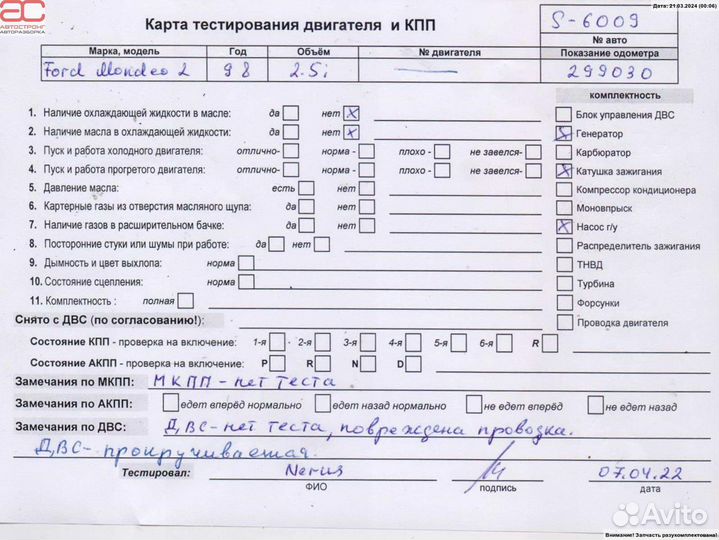 Дата: 21.03.2024 (00:06)
АС
АВТОСТРОНГ
АВТОРАЗБОРКА
Карта тестирования двигателя и КПП
S-6009
№ авто
Марка, модель Год Объём № двигателя Показание одометра
Ford Mondeo 2 98 2.5i — 299030
комплектность
1. Наличие охлаждающей жидкости в масле: да нет X
Блок управления ДВС
2. Наличие масла в охлаждающей жидкости: да нет X
Генератор
3. Пуск и работа холодного двигателя: отлично- норма - плохо - не завелся-
Карбюратор
4. Пуск и работа прогретого двигателя: отлично- норма - плохо - не завелся-
X Катушка зажигания
5. Давление масла: есть нет
Компрессор кондиционера
6. Картерные газы из отверстия масляного щупа: да нет
Моновпрыск
7. Наличие газов в расширительном бачке: да нет
X Насос г/у
8. Посторонние стуки или шумы при работе: да нет
Распределитель зажигания
9. Дымность и цвет выхлопа: норма
ТНВД
10. Состояние сцепления: норма
Турбина
11. Комплектность : полная
Форсунки
Снято с ДВС (по согласованию!):
Проводка двигателя
Состояние КПП - проверка на включение: 1-я 2-я 3-я 4-я 5-я 6-я R
Состояние АКПП - проверка на включение: P R N D
Замечания по МКПП: МКПП - нет теста
Замечания по АКПП: едет вперёд нормально едет назад нормально не едет вперёд не едет назад
Замечания по ДВС: ДВС-нет теста, повреждена проводка.
ДВС-прокручиваемая.
Тестировал: Nerus 07.04.22
ФИО подпись дата
Avito
Внимание! Запчасть разукомплектована!